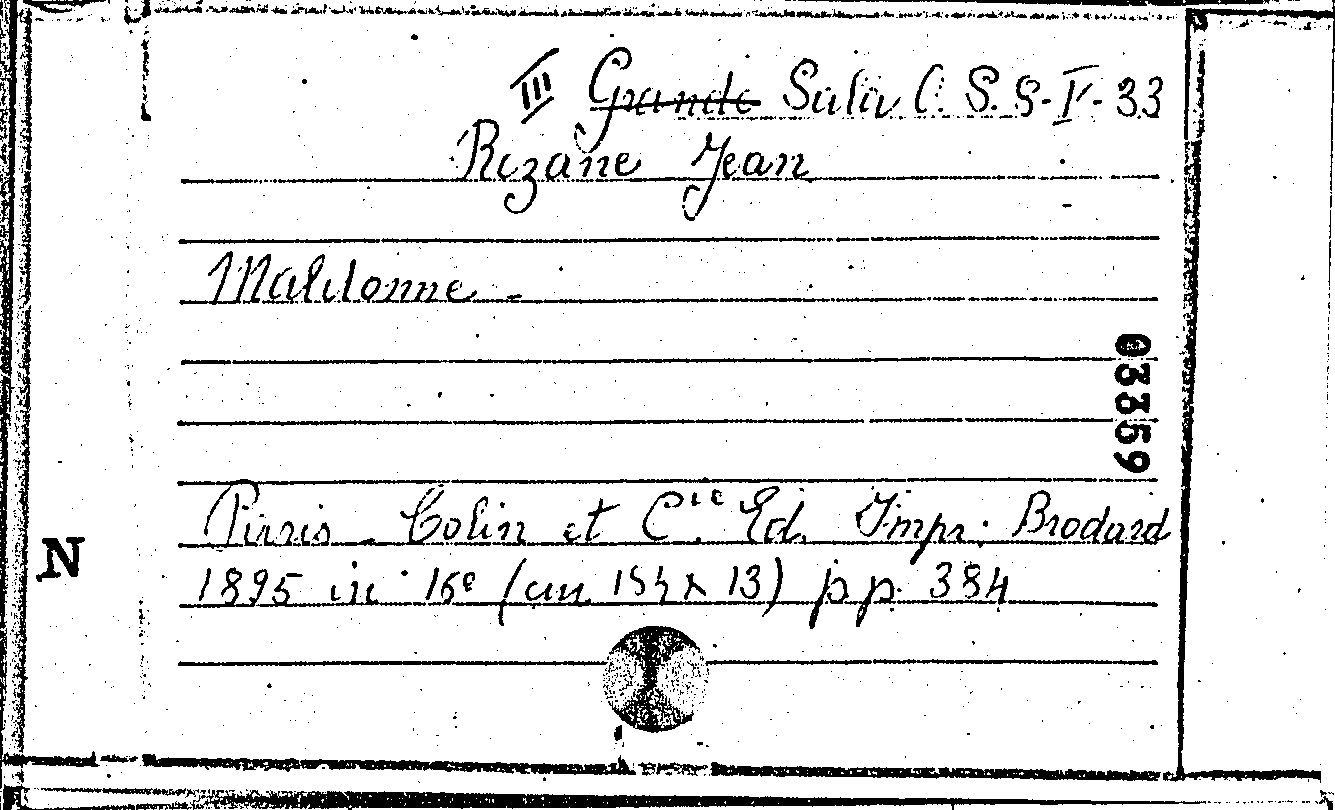 III Grande Sala C. S. S-V-33
Rezane Jean
Maldonne -
03359
Paris - Colin et Cie Ed. Impr: Brodard
N
1895 in 16º (cm 154 x 13) pp. 384